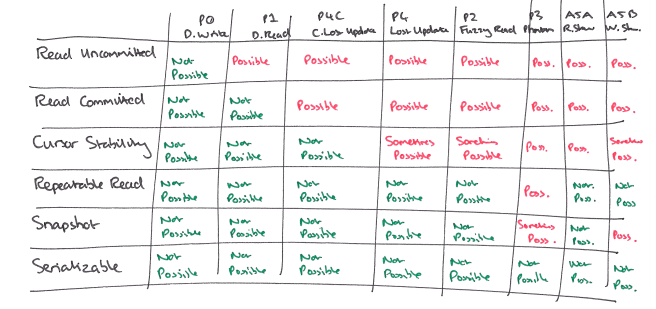 P0 P1 P4C P4 P2 P3 A5A A5B
D.Write D.Read C.Lost Update Lost Update Fuzzy Read Phantom R.Skew W.Sk..
Read Uncommitted Not Possible Possible Possible Possible Possible Poss. Poss. Poss.
Read Committed Not Possible Not Possible Possible Possible Possible Poss. Poss. Poss.
Cursor Stability Not Possible Not Possible Not Possible Sometimes Possible Sometimes Possible Poss. Poss. Sometimes Poss.
Repeatable Read Not Possible Not Possible Not Possible Not Possible Not Possible Poss. Not Poss. Not Poss
Snapshot Not Possible Not Possible Not Possible Not Possible Not Possible Sometimes Poss. Not Poss. Poss.
Serializable Not Possible Not Possible Not Possible Not Possible Not Possible Not Possible Not Poss. Not Poss